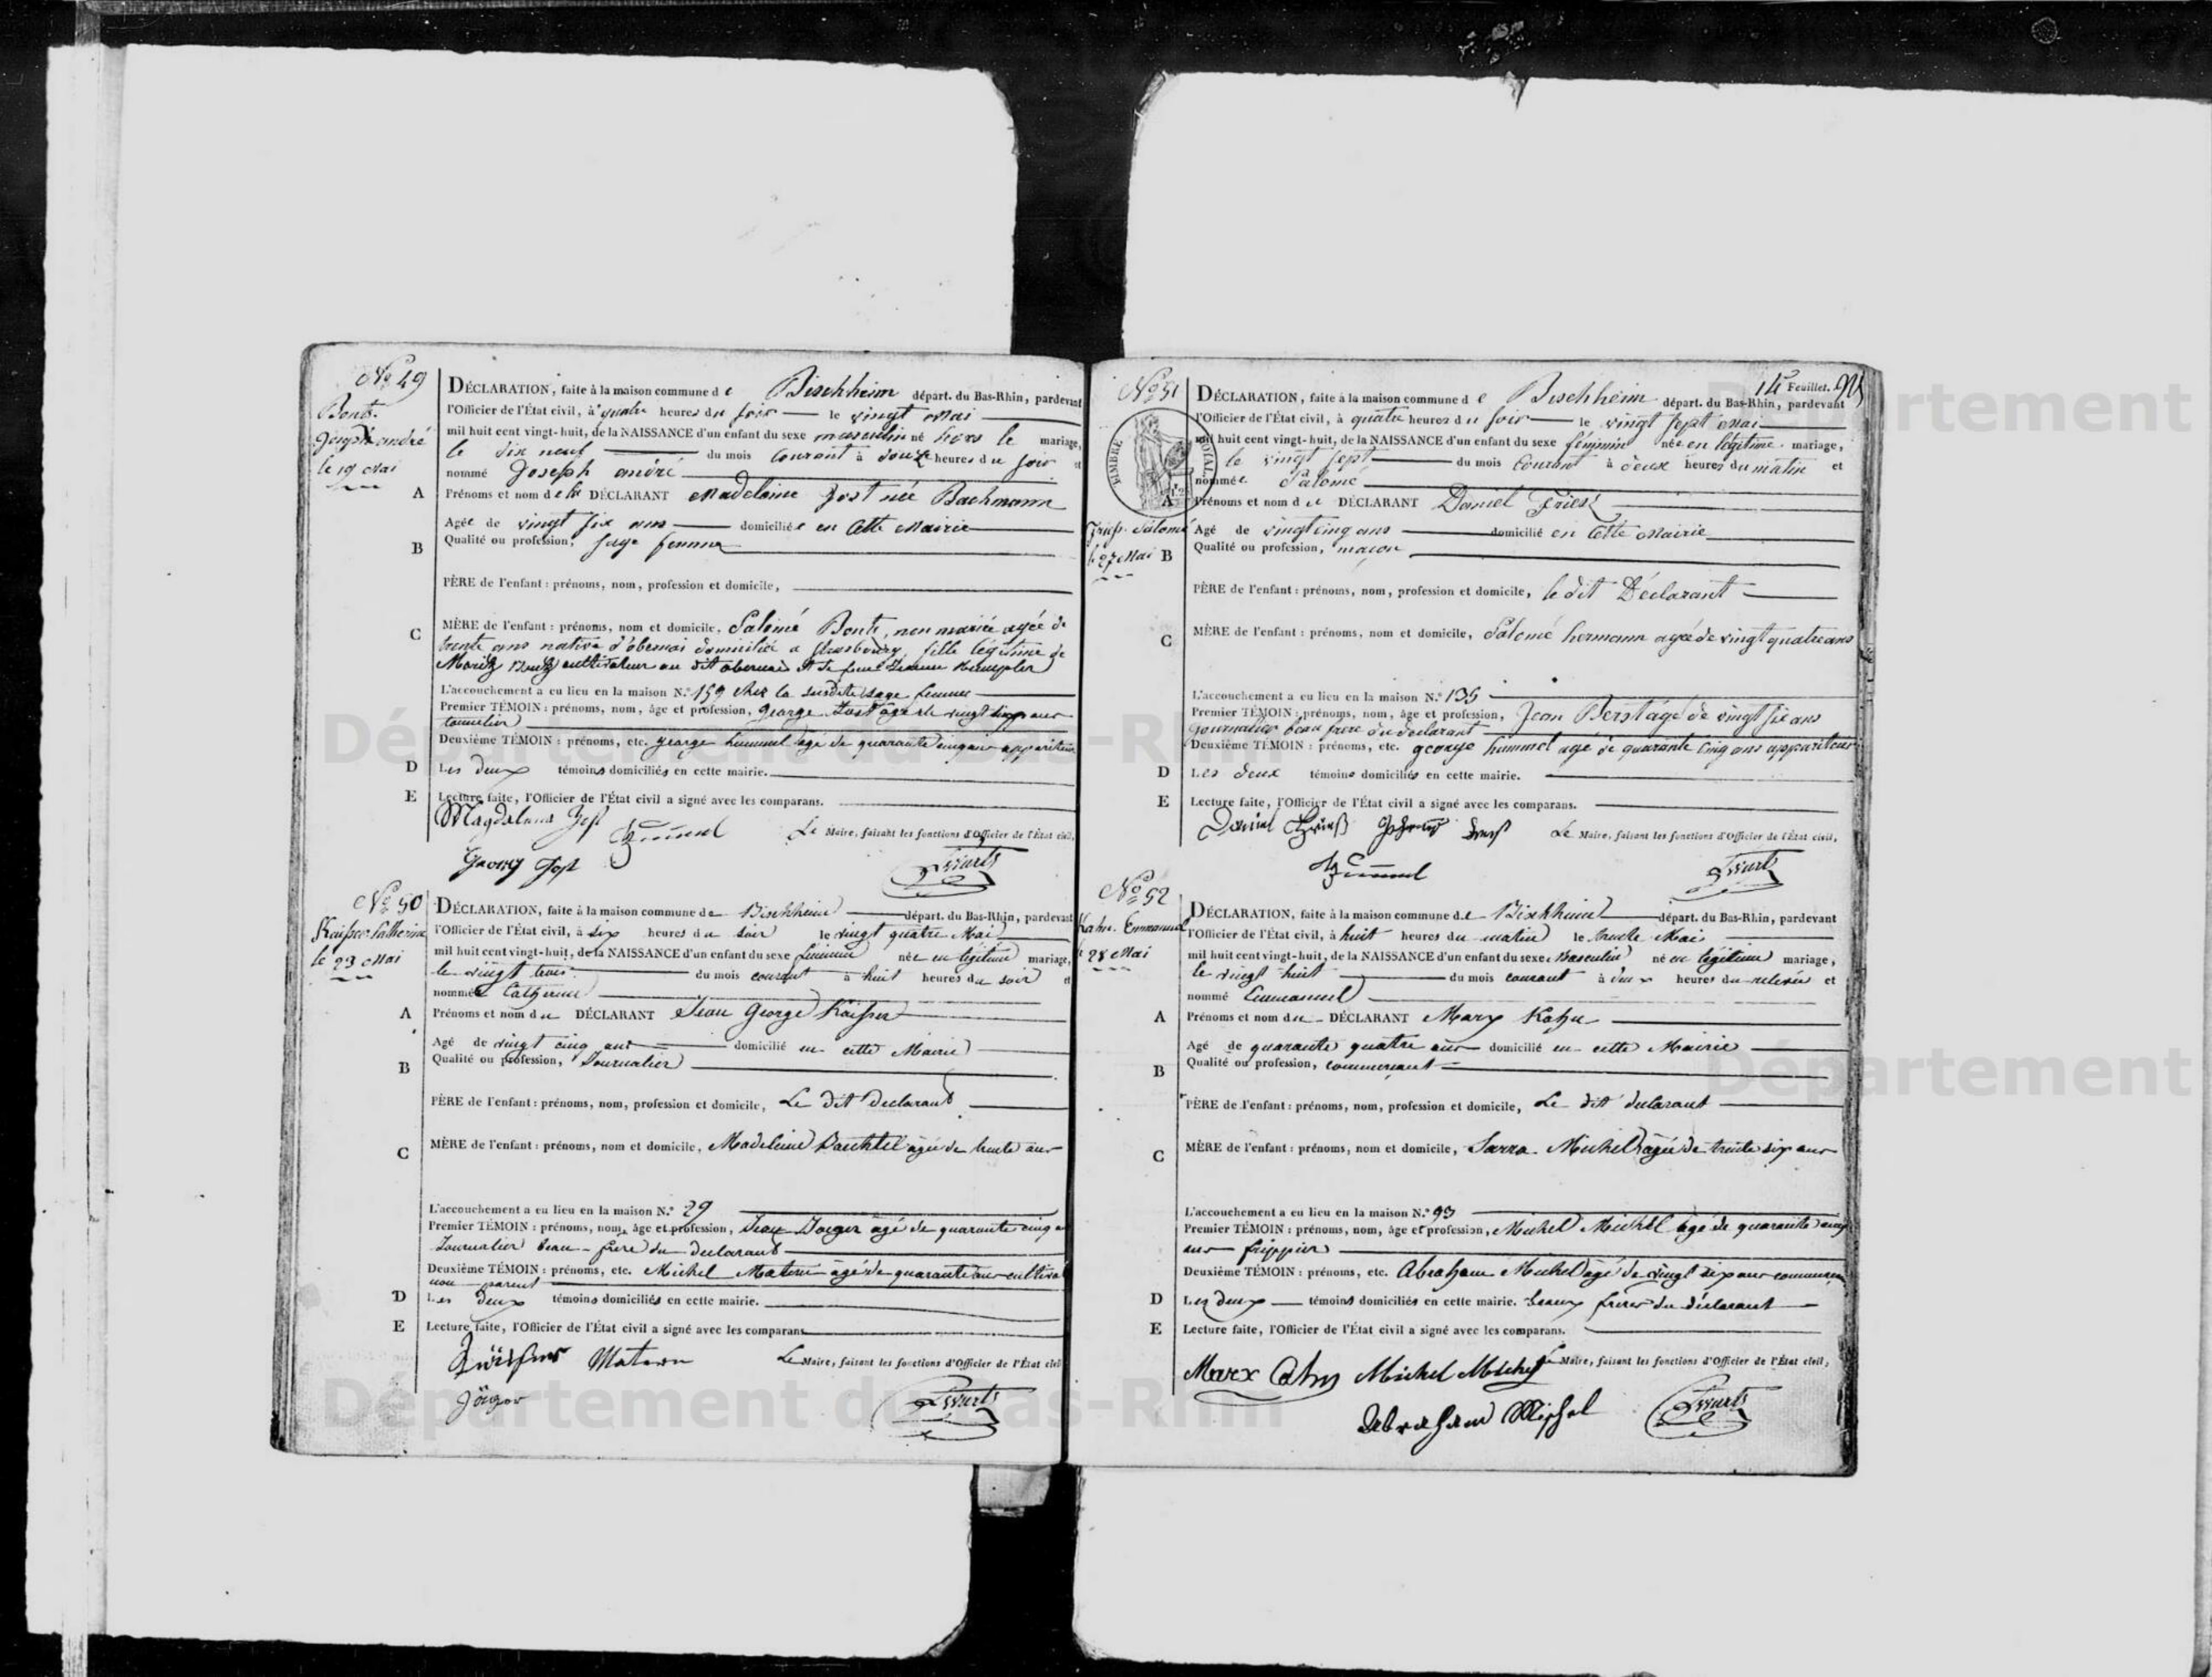 No 49
Bentz
Joseph andré
le 19 Mai
DÉCLARATION, faite à la maison commune de Bischheim départ. du Bas-Rhin, pardevant
l'Officier de l'État civil, à quatre heures du soir le vingt Mai
mil huit cent vingt-huit, de la NAISSANCE d'un enfant du sexe masculin né hors le mariage,
le dix neuf du mois courant à douze heures du soir et
nommé Joseph andré
A Prénoms et nom de la DÉCLARANT Madelaine Jost née Bachmann
Agée de vingt six ans domiciliée en cette Mairie
B Qualité ou profession, sage femme
PÈRE de l'enfant : prénoms, nom, profession et domicile,
C MÈRE de l'enfant : prénoms, nom et domicile, Salomé Bentz, non mariée agée de
trente ans native d'obernai domiciliée a strasbourg, fille légitime de
Moritz Bentz cultivateur au dit obernai et de feue
L'accouchement a eu lieu en la maison N.° 159 chez la susdite sage femme
Premier TÉMOIN : prénoms, nom, âge et profession, George Jost âgé de vingt sept ans
tonnelier
Deuxième TÉMOIN : prénoms, etc. george himmel agé de quarante cinq ans appariteur
D Les deux témoins domiciliés en cette mairie.
E Lecture faite, l'Officier de l'État civil a signé avec les comparans.
Magdalena Jost Himmel Le Maire, faisant les fonctions d'Officier de l'État civil,
Georg Jost Wurtz
No 50
Kaisser Catherine
le 23 Mai
DÉCLARATION, faite à la maison commune de Bischheim départ. du Bas-Rhin, pardevant
l'Officier de l'État civil, à six heures du soir le vingt quatre Mai
mil huit cent vingt-huit, de la NAISSANCE d'un enfant du sexe féminin née en légitime mariage,
le vingt trois du mois courant à huit heures du soir et
nommée Catherine
A Prénoms et nom du DÉCLARANT Jean George Kaisser
Agé de vingt cinq ans domicilié en cette Mairie
B Qualité ou profession, Journalier
PÈRE de l'enfant : prénoms, nom, profession et domicile, Le dit déclarant
C MÈRE de l'enfant : prénoms, nom et domicile, Madeleine agée de trente ans
L'accouchement a eu lieu en la maison N.° 29
Premier TÉMOIN : prénoms, nom, âge et profession, Jean Jaeger agé de quarante cinq
Journalier beau-frère du déclarant
Deuxième TÉMOIN : prénoms, etc. Michel Matern agé de quarante ans
non parent
D Les deux témoins domiciliés en cette mairie.
E Lecture faite, l'Officier de l'État civil a signé avec les comparans
Matern Le Maire, faisant les fonctions d'Officier de l'État civil
Jäger Wurtz
14e Feuillet.
No 51
TIMBRE ROYAL
Friess Salomé
le 27 Mai
DÉCLARATION, faite à la maison commune de Bischheim départ. du Bas-Rhin, pardevant
l'Officier de l'État civil, à quatre heures du soir le vingt sept Mai
mil huit cent vingt-huit, de la NAISSANCE d'un enfant du sexe féminin née en légitime mariage,
le vingt sept du mois courant à deux heures du matin et
nommée Salomé
A Prénoms et nom du DÉCLARANT Daniel Friess
Agé de vingt cinq ans domicilié en cette Mairie
B Qualité ou profession, maçon
PÈRE de l'enfant : prénoms, nom, profession et domicile, le dit Déclarant
C MÈRE de l'enfant : prénoms, nom et domicile, Salomé hermann agée de vingt quatre ans
L'accouchement a eu lieu en la maison N.° 135
Premier TÉMOIN : prénoms, nom, âge et profession, Jean Berst agé de vingt six ans
Journalier beau frere du declarant
Deuxième TÉMOIN : prénoms, etc. george himmel agé de quarante cinq ans appariteur
D Les deux témoins domiciliés en cette mairie.
E Lecture faite, l'Officier de l'État civil a signé avec les comparans.
Daniel Frieß Le Maire, faisant les fonctions d'Officier de l'État civil,
Himmel Wurtz
No 52
Kahn Emmanuel
le 28 Mai
DÉCLARATION, faite à la maison commune de Bischheim départ. du Bas-Rhin, pardevant
l'Officier de l'État civil, à huit heures du matin le trente Mai
mil huit cent vingt-huit, de la NAISSANCE d'un enfant du sexe masculin né en légitime mariage,
le vingt huit du mois courant à deux heures de relevée et
nommé Emmanuel
A Prénoms et nom du DÉCLARANT Marx Kahn
Agé de quarante quatre ans domicilié en cette Mairie
B Qualité ou profession, commerçant
PÈRE de l'enfant : prénoms, nom, profession et domicile, Le dit déclarant
C MÈRE de l'enfant : prénoms, nom et domicile, Sarra Michel agée de trente six ans
L'accouchement a eu lieu en la maison N.° 93
Premier TÉMOIN : prénoms, nom, âge et profession, Michel Michel agé de quarante cinq
ans frippier
Deuxième TÉMOIN : prénoms, etc. Abraham Michel agé de vingt six ans commerçant
D Les deux témoins domiciliés en cette mairie. beaux frères du déclarant
E Lecture faite, l'Officier de l'État civil a signé avec les comparans.
Marx Cahn Michel Michel Le Maire, faisant les fonctions d'Officier de l'État civil,
Abraham Michel Wurtz
Département du Bas-Rhin
Département
Département du Bas-Rhin
Département